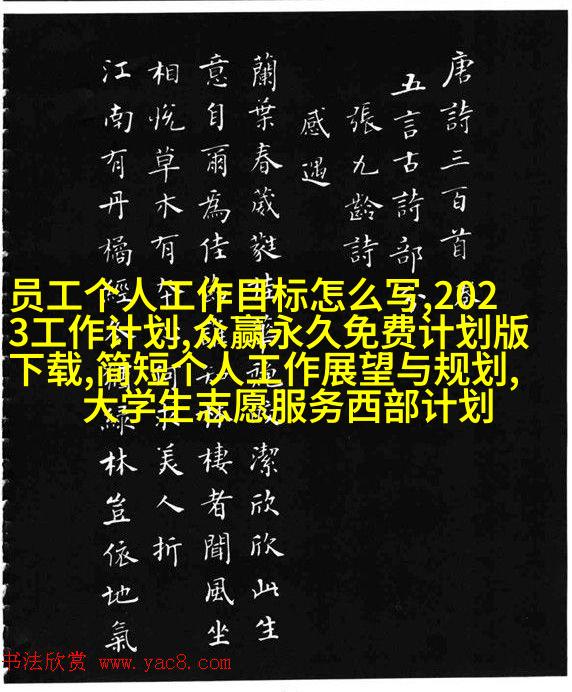 唐詩三百首
五言古詩部
張九齡詩
感遇
蘭葉春葳蕤潔欣欣此生
意自爾爲佳棲者聞風坐
相悅草木有美人折
江南有丹橘經綠林豈依地氣
员工个人工作目标怎么写,202
3工作计划,众赢永久免费计划版
下载,简短个人工作展望与规划,
大学生志愿服务西部计划
书法欣赏 www.yac8.com